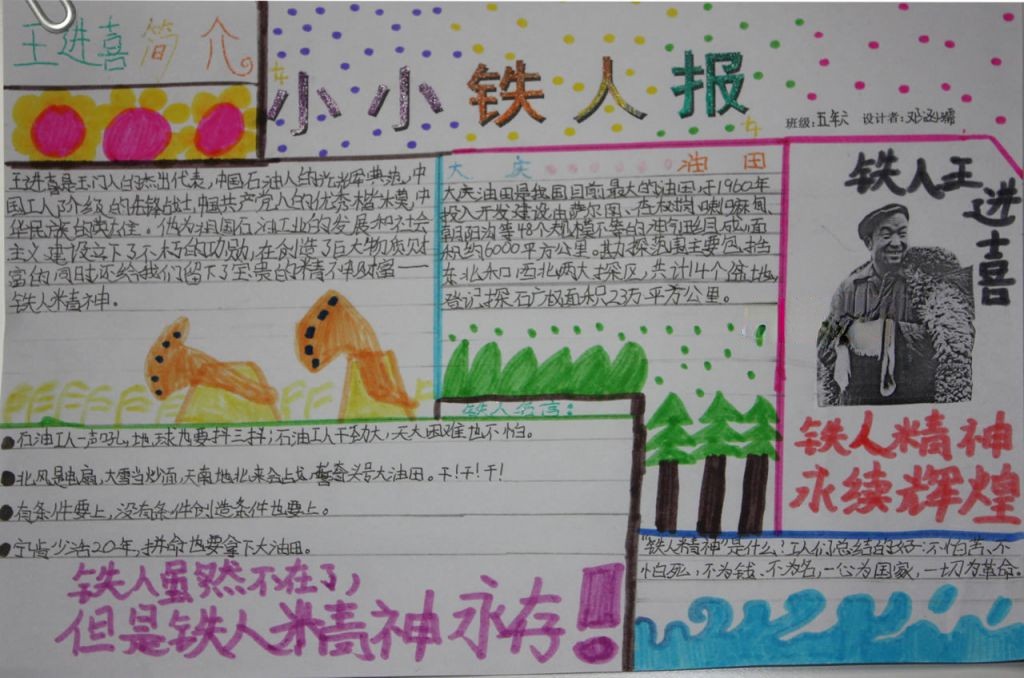 王进喜简介
小小铁人报
班级:五年六 设计者:邓涵
王进喜是玉门人的杰出代表,中国石油人的光辉典范,中
国工人阶级的先锋战士,中国共产党人的优秀楷模,中
华民族的英雄。他为祖国石油工业的发展和社会
主义建设立下了不朽的功勋,在创造了巨大物质财
富的同时还给我们留下了宝贵的精神财富——
铁人精神。
大庆油田
大庆油田是我国目前最大的油田,于1960年
投入开发建设,由萨尔图、杏树岗、喇嘛甸、
朝阳沟等48个规模不等的油气田组成,面
积约6000平方公里。勘探范围主要包括
东北和西北两大探区,共计14个盆地,
登记探矿权面积23万平方公里。
铁人王进喜
铁人精神
永续辉煌
铁人名言:
●石油工人一声吼,地球也要抖三抖;石油工人干劲大,天大困难也不怕。
●北风是电扇,大雪当炒面,天南地北来会战,誓夺头号大油田。干!干!干!
●有条件要上,没有条件创造条件也要上。
●宁肯少活20年,拼命也要拿下大油田。
铁人虽然不在了,
但是铁人精神永存!!
"铁人精神"是什么?工人们总结的好:不怕苦、不
怕死,不为钱、不为名,一心为国家,一切为革命。